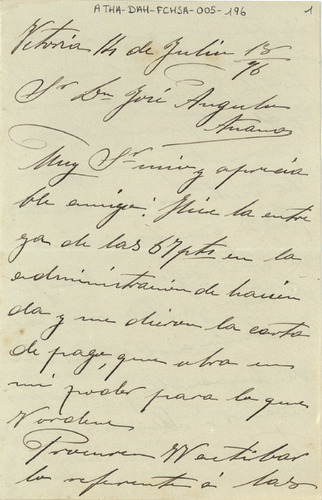 ATHA-DAH-FCHSA-005-196
1
Vitoria 14 de Julio 18/96
Sr Dn José Angulo
Anana
Muy Sr mio y aprecia
ble amigo: Hice la entre
ga de las 67 pts en la
administración de hacien
da y me dieron la carta
de pago, que obra en
mi poder para lo que
V ordene
Procuren activar
lo referente á las